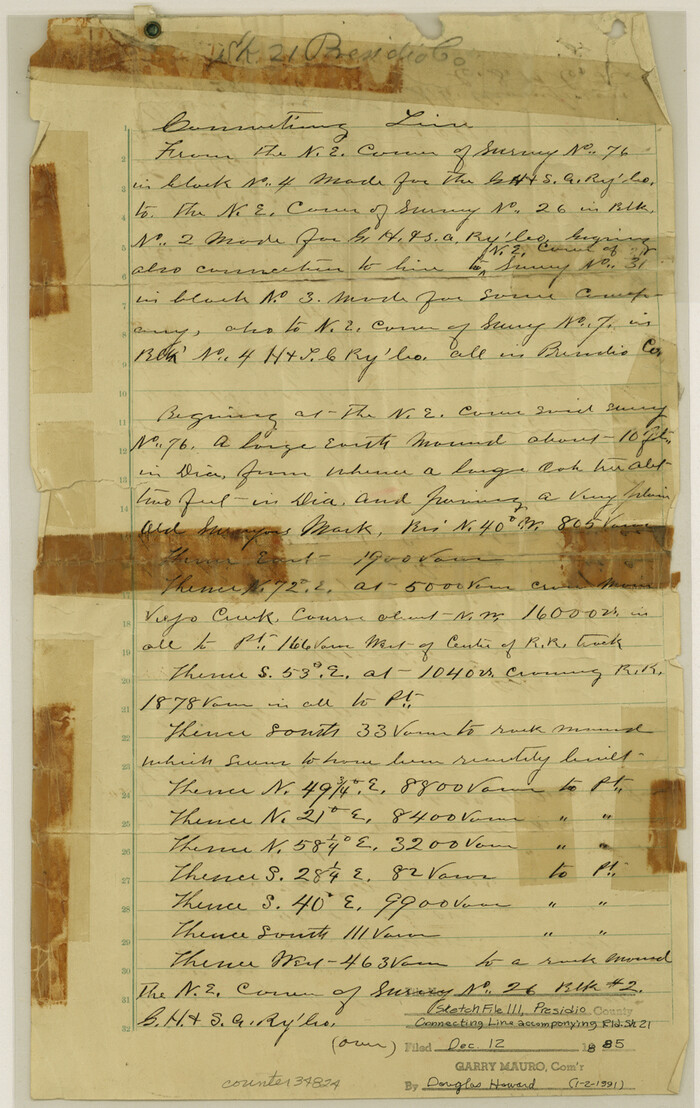 Sk. 21 Presidio Co
Connecting Line
From the N.E. Corner of Survey No. 76
in block No. 4 Made for the G.H.&S.A. Ry'Co.
to the N.E. Corner of Survey No. 26 in Blk.
No. 2 Made for G.H.&S.A. Ry'Co,
N.E. Corner of
also connection to line to Survey No. 31
in block No 3. Made for same Comp-
any, also to N.E. Corner of Survey No. 7. in
Blk' No. 4 H&T.C Ry'Co. all in Presidio Co,
Begining at the N.E. Corner said Survey
No. 76. A large Earth Mound about 10 ft.
in Dia, from whence a large Oak tree abt
two feet in Dia. and having a Very plain
Old Surveyors Mark, Brs' N. 40° W. 805 Varas
Thence East 1900 Varas
Thence N. 72° E. at 5000 Varas cross
Viejo Creek. Course about N.W. 16000 vrs. in
all to Pt. 166 Varas West of Center of R.R. track
Thence S. 53° E. at 1040 vrs. crossing R.R.
1878 Varas in all to Pt.
Thence South 33 Varas to rock mound
which seems to have been recently built
Thence N. 49 3/4° E. 8800 Varas to Pt.
Thence N. 21° E. 8400 Varas " "
Thence N. 58 1/4° E. 3200 Varas " "
Thence S. 28 1/4 E. 82 Varas to Pt.
Thence S. 40° E. 9900 Varas " "
Thence South 111 Varas " "
Thence West 463 Varas to a rock mound
the N.E. Corner of Survey No. 26 Blk #2.
G.H.&S.A. Ry'Co.
(over)
Sketch File 111, Presidio County
Connecting Line accompanying Rld. Sk 21
Filed Dec. 12 1885
GARRY MAURO, Com'r
By Douglas Howard (1-2-1991)
counter 34824
1
2
3
4
5
6
7
8
9
10
11
12
13
14
18
19
20
21
22
23
24
25
26
27
28
29
30
31
32